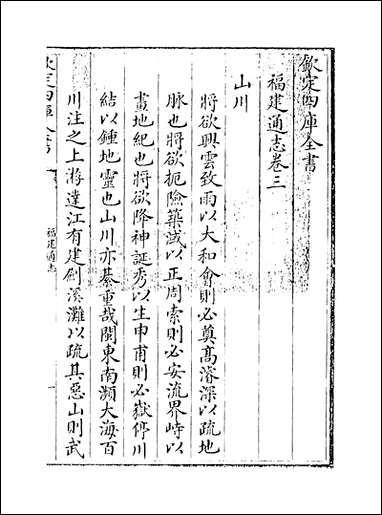 欽定四庫全書
福建通志卷三
山川
將欲興雲致雨以大和會則必奠髙濬深以疏地
脉也將欲扼險築滅以正周索則必安流界峙以
畫地紀也將欲降神誕秀以生申甫則必嶽停川
結以鍾地靈也山川亦綦重哉閩東南瀕大海百
川注之上游達江有建劍溪灘以疏其惡山則武
福建通志
一